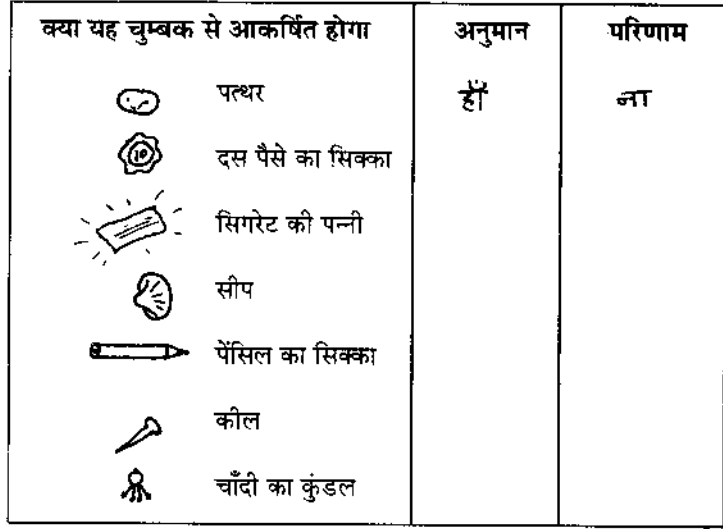 क्या यह चुम्बक से आकर्षित होगा अनुमान परिणाम
पत्थर हाँ ना
10 दस पैसे का सिक्का
सिगरेट की पन्नी
सीप
पेंसिल का सिक्का
कील
चाँदी का कुंडल